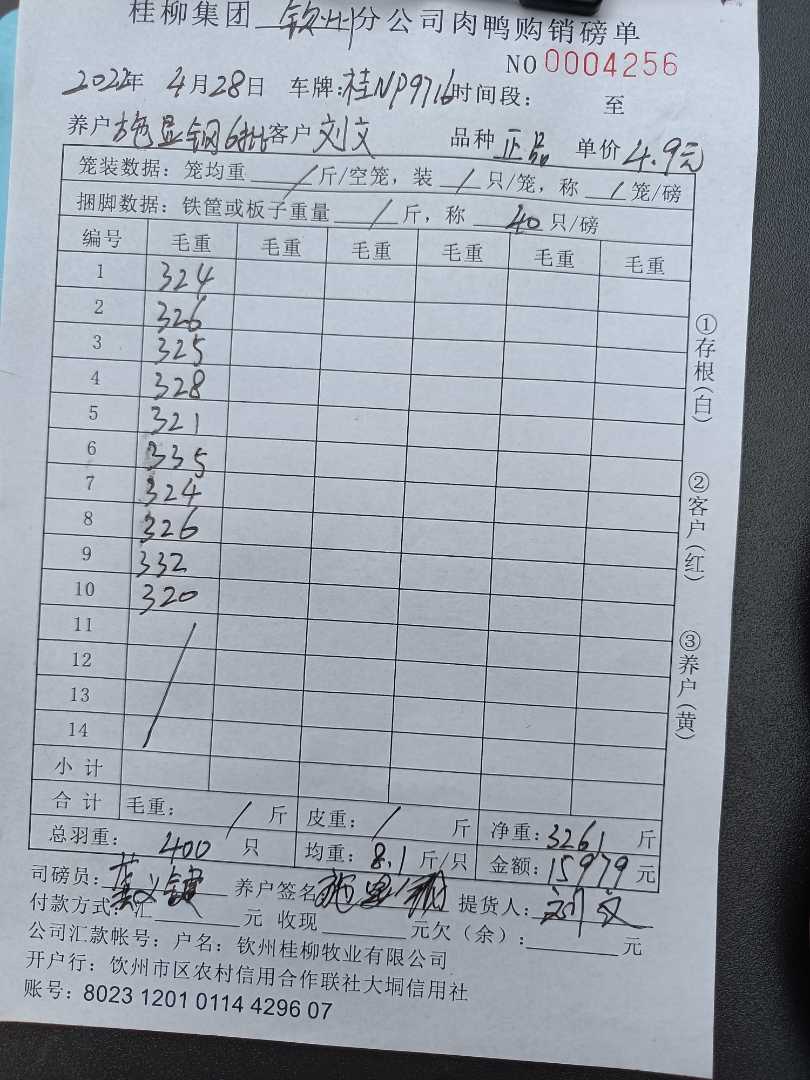 桂柳集团 钦州 分公司肉鸭购销磅单
NO 0004256
2022年 4月28日 车牌:桂NP9716 时间段: 至
养户 施显钢6批 客户 刘文 品种 正品 单价 4.9元
笼装数据: 笼均重 / 斤/空笼, 装 / 只/笼, 称 / 笼/磅
捆脚数据: 铁筐或板子重量 / 斤, 称 40 只/磅
编号 毛重 毛重 毛重 毛重 毛重 毛重
1 324
2 326
3 325
4 328
5 321
6 335
7 324
8 326
9 332
10 320
11
12
13
14
小计
合计 毛重: / 斤 皮重: / 斤 净重: 3261 斤
总羽重: 400 只 均重: 8.1 斤/只 金额: 15979 元
司磅员: 养户签名 提货人: 刘文
付款方式: 汇 元 收现 元欠(余): 元
公司汇款帐号: 户名: 钦州桂柳牧业有限公司
开户行: 钦州市区农村信用合作联社大垌信用社
账号: 8023 1201 0114 4296 07
①存根(白)
②客户(红)
③养户(黄)